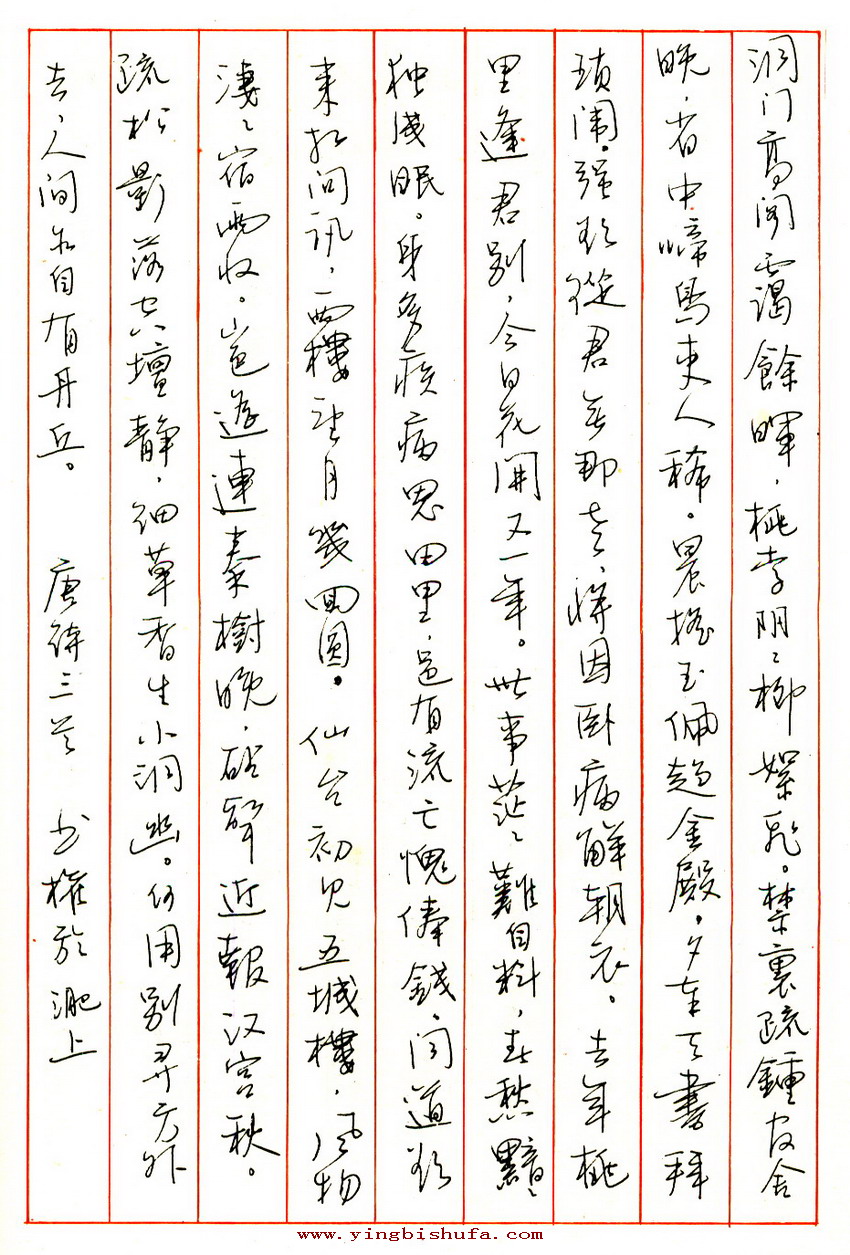 洞门高阁靄餘暉，桃李阴〻柳絮飛。禁裏疏鍾官舍
晚，省中啼鳥吏人稀。晨摇玉佩趋金殿，夕奉天書拜
琐闱。强欲從君無那老，将因卧病解朝衣。去年桃
里逢君别，今日花開又一年。世事茫〻難自料，春愁黯〻
独成眠。身多疾病思田里，邑有流亡愧俸錢。闻道欲
来相问讯，西樓望月幾回圆。仙台初见五城樓，風物
淒〻宿雨收。山色遥連秦樹晚，砧聲近報汉宫秋。
疏松影落空壇静，细草香生小洞幽。何用别尋方外
去，人间亦自有丹丘。 唐詩三首 书權於淝上
www.yingbishufa.com